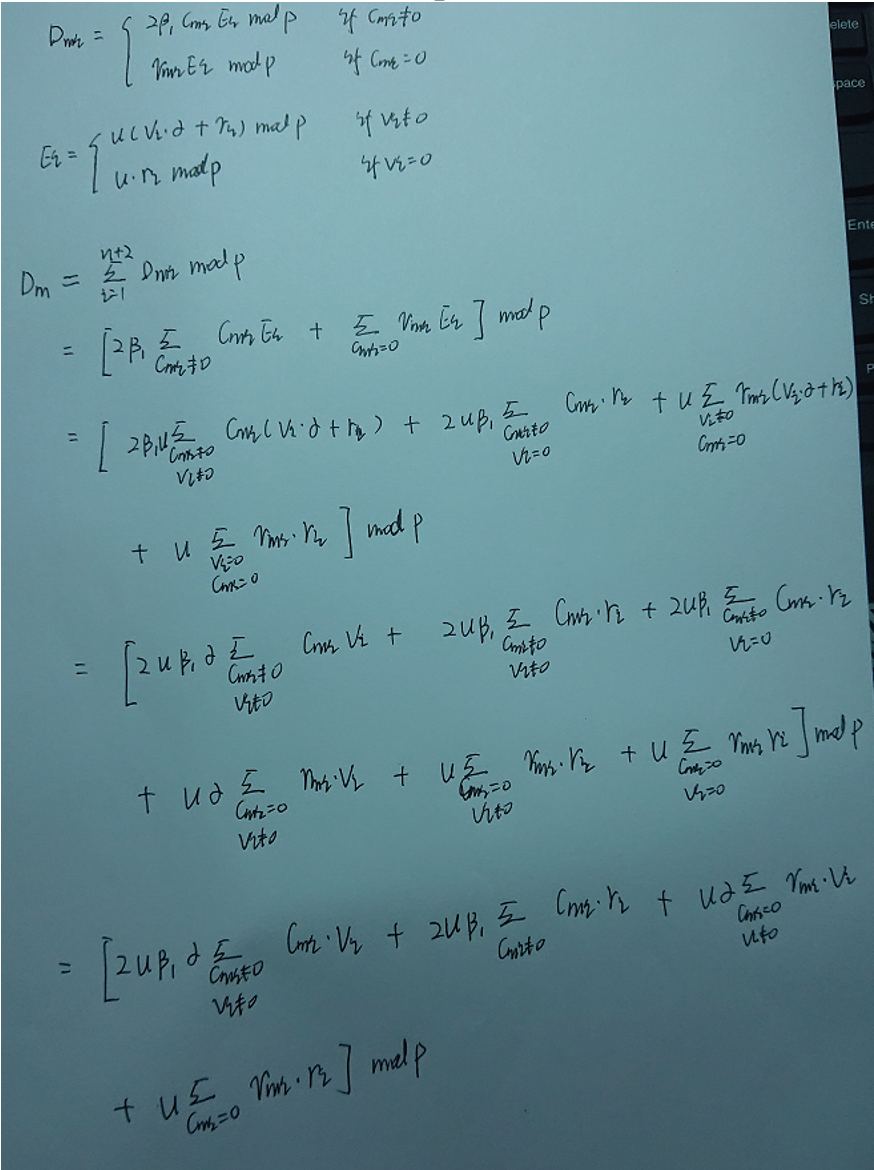 D_{mi} = { 2β₁ C_{mi} E_i mod p   if C_{mi}≠0
r_{mi} E_i mod p   if C_{mi}=0
E_i = { u(V_i·∂ + r_i) mod p   if V_i≠0
u·r_i mod p   if V_i=0
D_m = Σ_{i=1}^{n+2} D_{mi} mod p
= [2β₁ Σ_{C_{mi}≠0} C_{mi} E_i + Σ_{C_{mi}=0} r_{mi} E_i] mod p
= [2β₁u Σ_{C_{mi}≠0, V_i≠0} C_{mi}(V_i·∂ + r_i) + 2uβ₁ Σ_{C_{mi}≠0, V_i=0} C_{mi}·r_i + u Σ_{V_i≠0, C_{mi}=0} r_{mi}(V_i·∂+r_i)
+ u Σ_{V_i=0, C_{mi}=0} r_{mi}·r_i] mod p
= [2uβ₁∂ Σ_{C_{mi}≠0, V_i≠0} C_{mi} V_i + 2uβ₁ Σ_{C_{mi}≠0, V_i≠0} C_{mi}·r_i + 2uβ₁ Σ_{C_{mi}≠0, V_i=0} C_{mi}·r_i
+ u∂ Σ_{C_{mi}=0, V_i≠0} r_{mi}·V_i + u Σ_{C_{mi}=0, V_i≠0} r_{mi}·r_i + u Σ_{C_{mi}=0, V_i=0} r_{mi} r_i] mod p
= [2uβ₁∂ Σ_{C_{mi}≠0, V_i≠0} C_{mi}·V_i + 2uβ₁ Σ_{C_{mi}≠0} C_{mi}·r_i + u∂ Σ_{C_{mi}=0, V_i≠0} r_{mi}·V_i
+ u Σ_{C_{mi}=0} r_{mi}·r_i] mod p
elete
pace
Ente
Sh
P